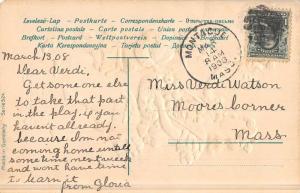 Levelezö-Lap • Postkarte • Correspondenzkarte
Cartolina postale • Carte postale • Union postale
Brefkort • Postcard • Weltpostverein • Dopisnice
Karta Korespondencyjna • Tarjeta postal
March 13, 08
Dear Verdi,
Get some one else
to take that part
in the play, if you
haven't all ready,
because I'm not
coming home until
some time next week
and wont have time
to learn it
from Gloria
MONTAGUE
MAR
14
8 AM
1908
MASS
Miss Verdi Watson
Moores borner
Mass.
Printed in Germany
Series